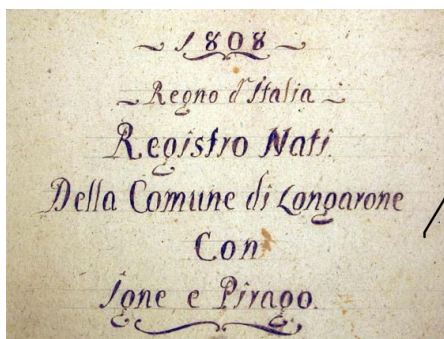 ~ 1808 ~
~ Regno d'Italia ~
Registro Nati
Della Comune di Longarone
Con
Igne e Pirago.